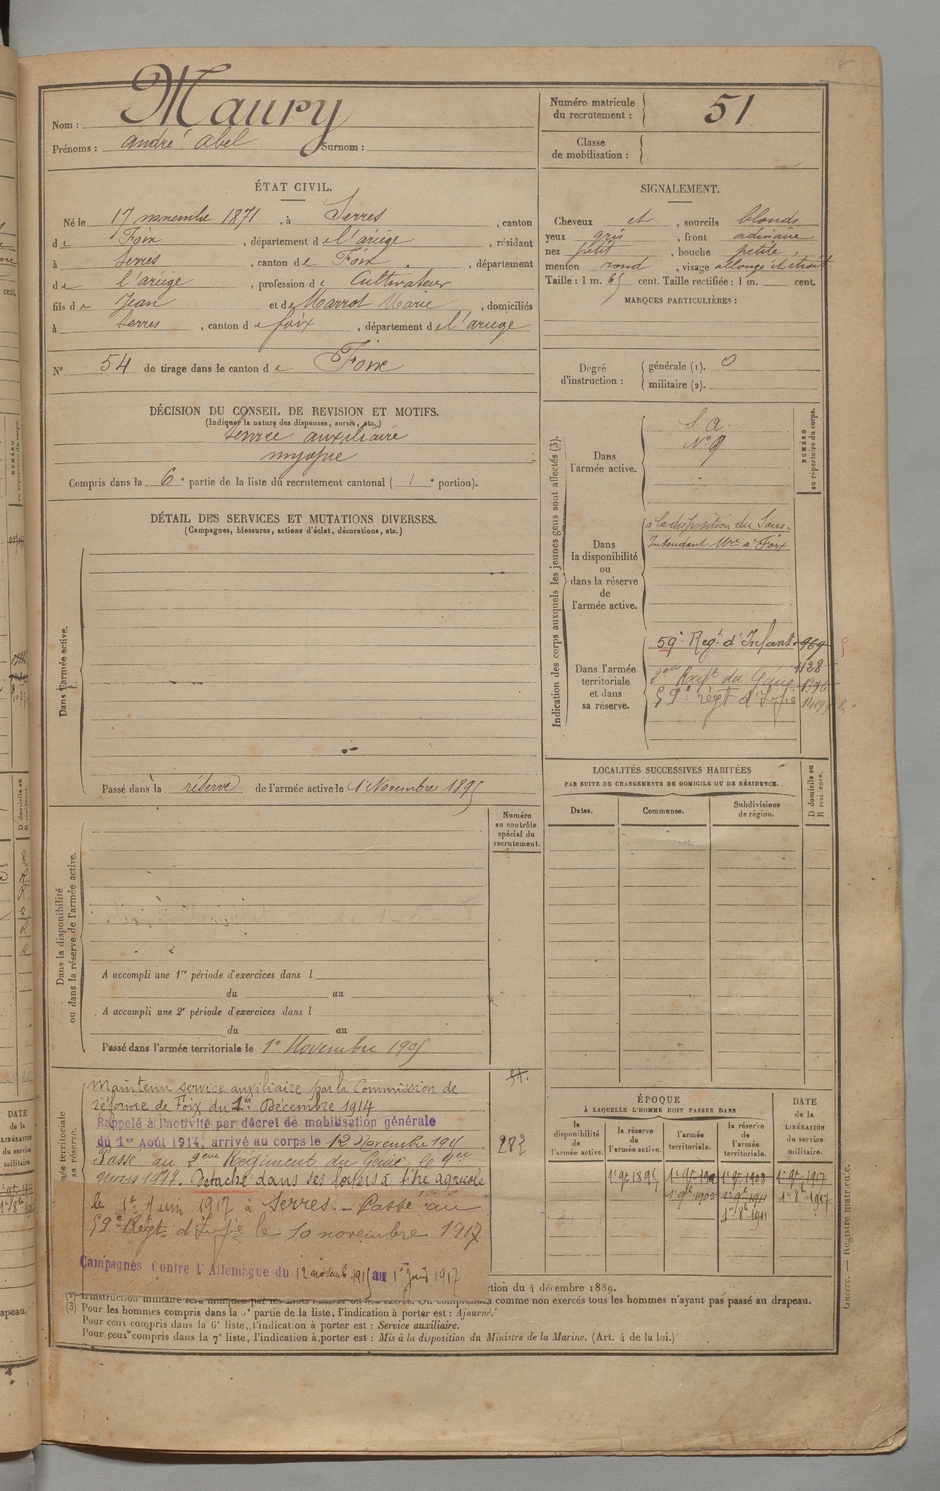 Nom : Maury
Prénoms : André Abel Surnom :
Numéro matricule du recrutement : 51
Classe de mobilisation :
ÉTAT CIVIL.
Né le 17 novembre 1871, à Serres, canton
de Foix, département de l'ariège, résidant
à Serres, canton de Foix, département
de l'ariège, profession de Cultivateur
fils de Jean et de Marrot Marie, domiciliés
à Serres, canton de foix, département de l'ariège
N° 54 de tirage dans le canton de Foix
SIGNALEMENT.
Cheveux et, sourcils blonds
yeux gris, front ordinaire
nez petit, bouche petite,
menton rond, visage allongé et étroit
Taille : 1 m. 65 cent. Taille rectifiée : 1 m. cent.
MARQUES PARTICULIÈRES :
Degré d'instruction : générale (1). 0
militaire (2).
DÉCISION DU CONSEIL DE REVISION ET MOTIFS.
(Indiquer la nature des dispenses, sursis, etc.)
Service auxiliaire
myopie
Compris dans la 6e partie de la liste du recrutement cantonal ( 1e portion).
DÉTAIL DES SERVICES ET MUTATIONS DIVERSES.
(Campagnes, blessures, actions d'éclat, décorations, etc.)
Dans l'armée active.
Passé dans la réserve de l'armée active le 1er Novembre 1895
Indication des corps auxquels les jeunes gens sont affectés (3).
NUMÉRO au répertoire du corps.
Dans l'armée active.
S. A.
N° 9
Dans la disponibilité ou dans la réserve de l'armée active.
à la disposition du Sous-
Intendant Mre à Foix
Dans l'armée territoriale et dans sa réserve.
59e Regt d'Infant. 969
1128
2eme Regt du Génie 1396
59e régt d'Infie
LOCALITÉS SUCCESSIVES HABITÉES
PAR SUITE DE CHANGEMENTS DE DOMICILE OU DE RÉSIDENCE.
D domicile ou R résidence.
Dates. Communes. Subdivisions de région.
Numéro au contrôle spécial du recrutement.
Dans la disponibilité ou dans la réserve de l'armée active.
A accompli une 1re période d'exercices dans l
du au
A accompli une 2e période d'exercices dans l
du au
Passé dans l'armée territoriale le 1er Novembre 1905
Maintenu service auxiliaire par la Commission de
réforme de Foix du 1er Décembre 1914
Rappelé à l'activité par décret de mobilisation générale
du 1er Août 1914, arrivé au corps le 12 Novembre 1915
282
Passé au 2eme Régiment du Génie le 1er
mars 1917. Détaché dans ses foyers à titre agricole
le 1er Juin 1917 à Serres. - Passé au
59e Regt d'Infie le 10 novembre 1917
Campagnes Contre l'Allemagne du 12 novemb 1915 au 1er Juin 1917
ÉPOQUE
À LAQUELLE L'HOMME DOIT PASSER DANS
la disponibilité de l'armée active.
la réserve de l'armée active.
l'armée territoriale.
la réserve de l'armée territoriale.
DATE de la LIBÉRATION du service militaire.
1er 9bre 1895 1er 9bre 1902 1er 9bre 1908 1er 9bre 1917
1er 9bre 1905 1er 9bre 1911 1er 8bre 1917
1er 8bre 1911
ction du 4 décembre 1889.
comme non exercés tous les hommes n'ayant pas passé au drapeau.
(3) Pour les hommes compris dans la 5e partie de la liste, l'indication à porter est : Ajourné.
Pour ceux compris dans la 6e liste, l'indication à porter est : Service auxiliaire.
Pour ceux compris dans la 7e liste, l'indication à porter est : Mis à la disposition du Ministre de la Marine. (Art. 4 de la loi.)
Guerre. — Registre matricule.